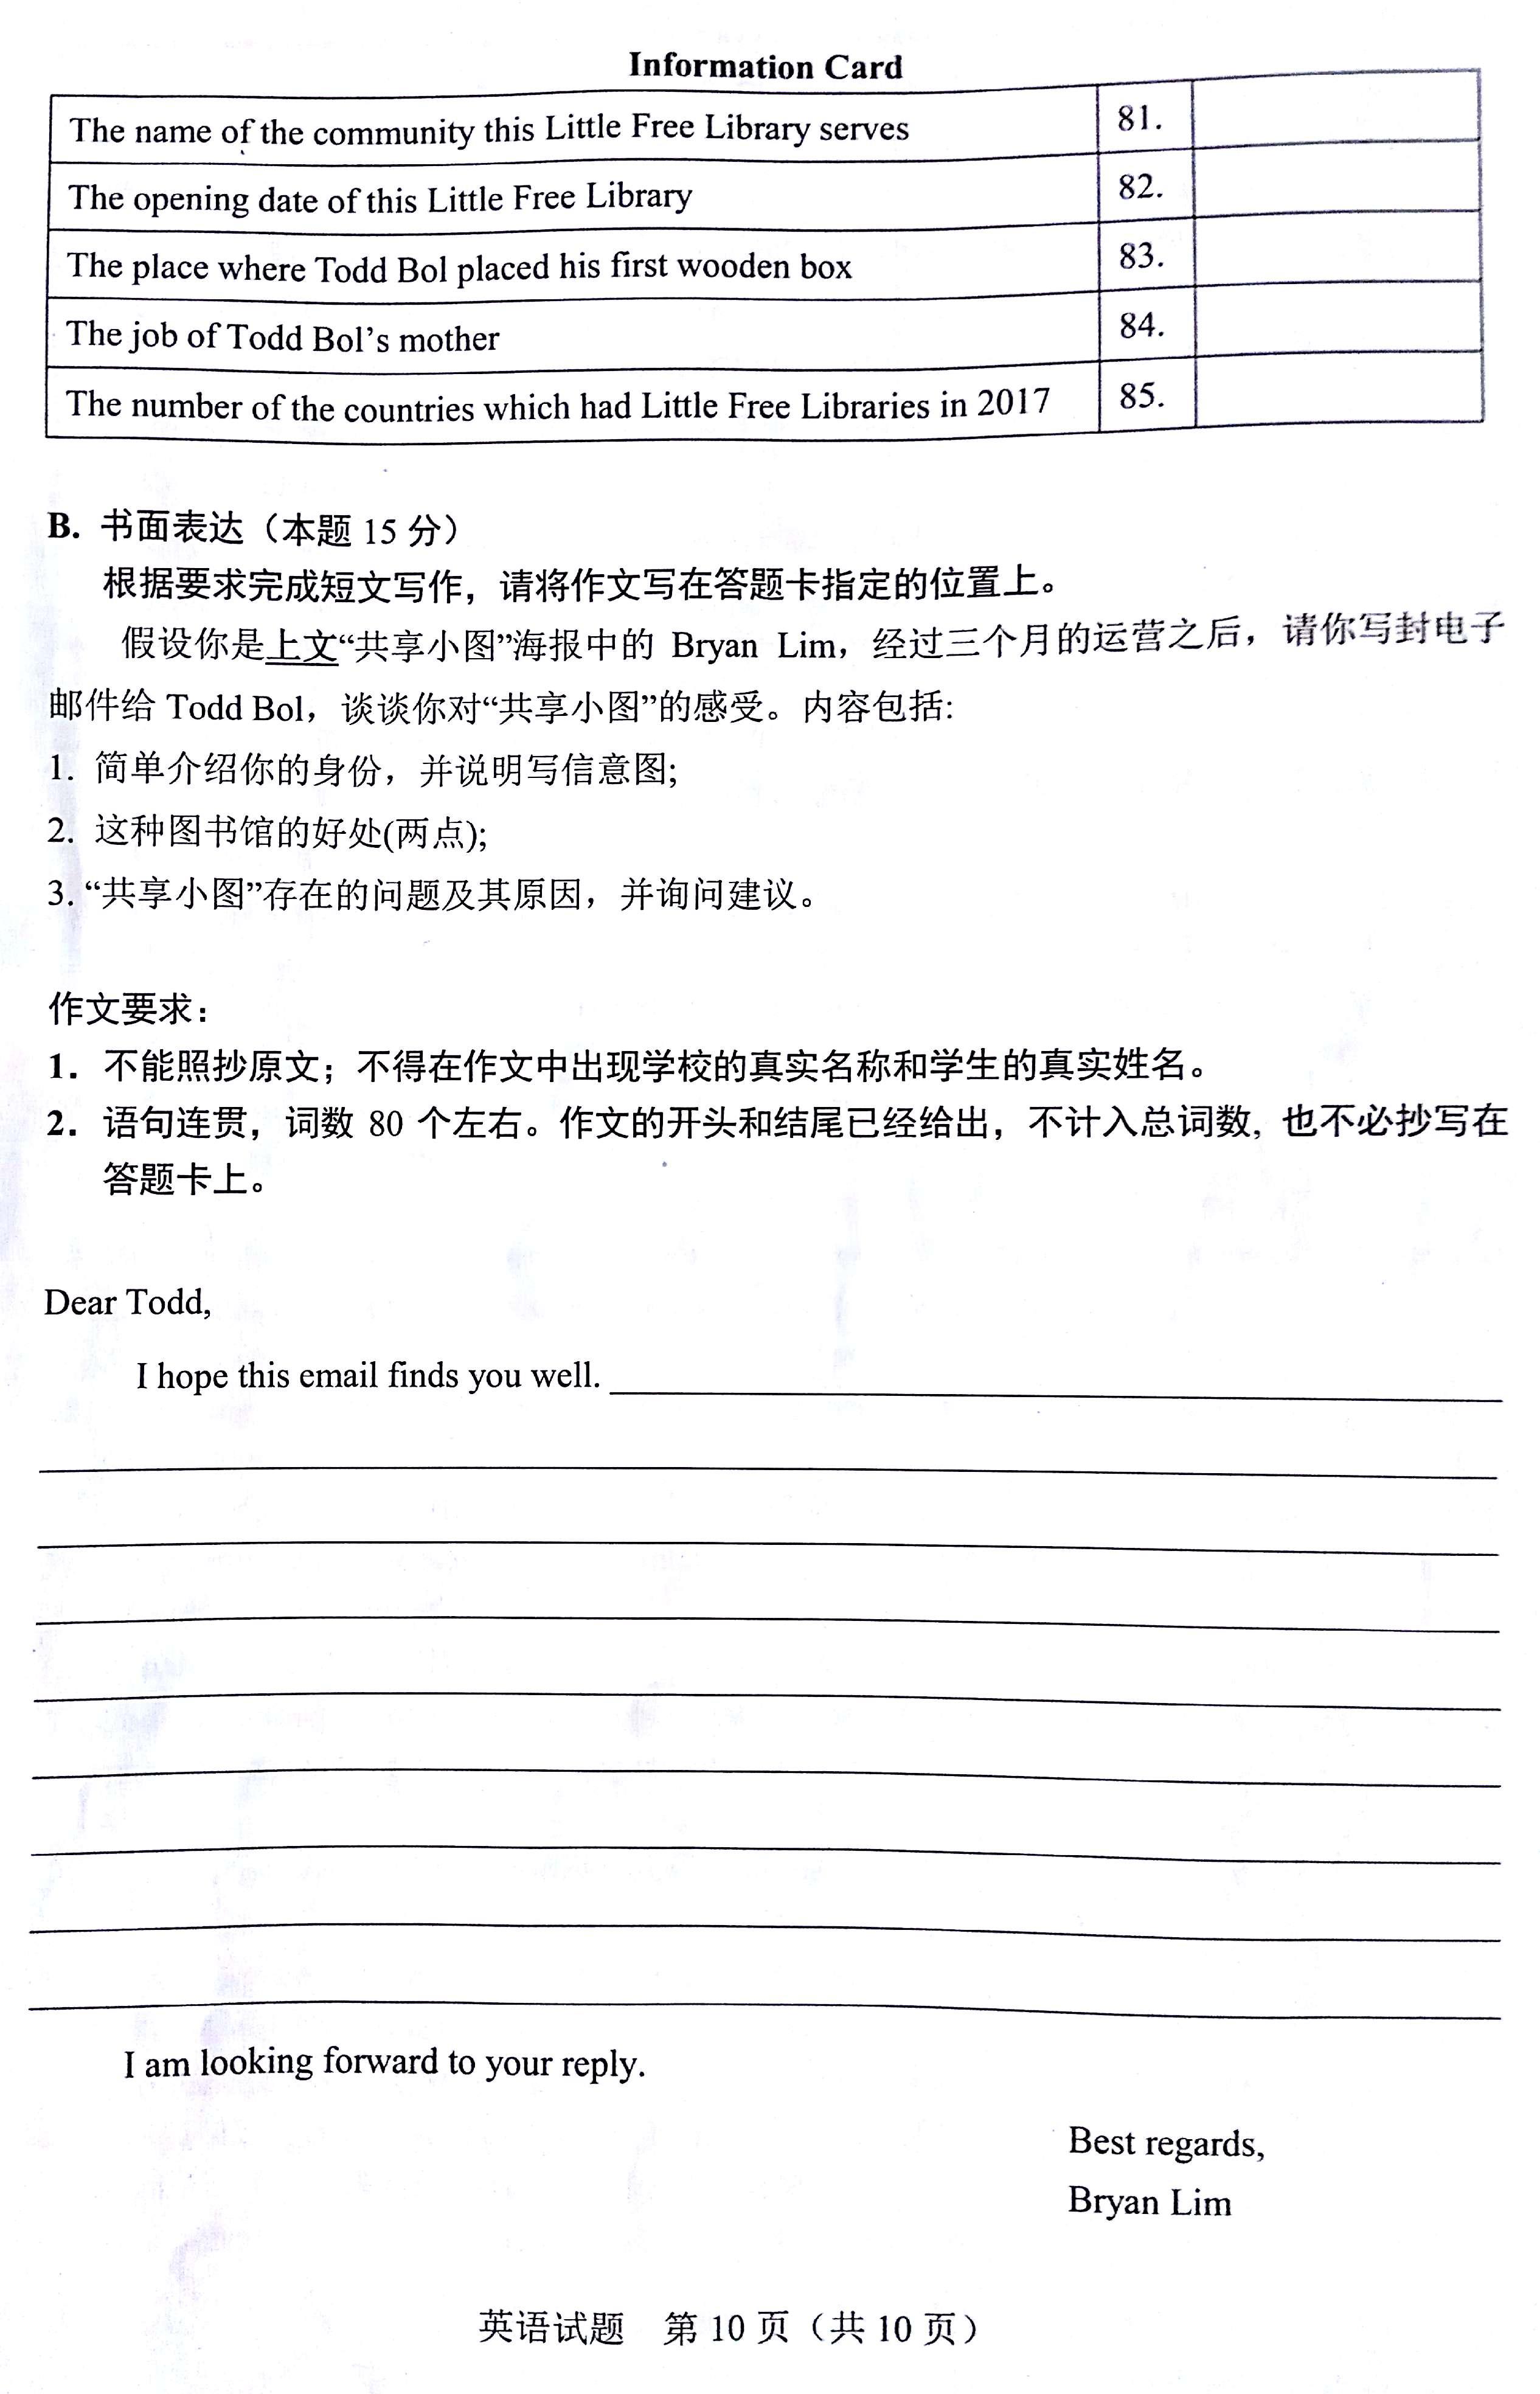 Information Card
The name of the community this Little Free Library serves 81.
The opening date of this Little Free Library 82.
The place where Todd Bol placed his first wooden box 83.
The job of Todd Bol's mother 84.
The number of the countries which had Little Free Libraries in 2017 85.
B. 书面表达（本题 15 分）
根据要求完成短文写作，请将作文写在答题卡指定的位置上。
假设你是上文“共享小图”海报中的 Bryan Lim，经过三个月的运营之后，请你写封电子
邮件给 Todd Bol，谈谈你对“共享小图”的感受。内容包括:
1. 简单介绍你的身份，并说明写信意图;
2. 这种图书馆的好处(两点);
3. “共享小图”存在的问题及其原因，并询问建议。
作文要求：
1. 不能照抄原文；不得在作文中出现学校的真实名称和学生的真实姓名。
2. 语句连贯，词数 80 个左右。作文的开头和结尾已经给出，不计入总词数, 也不必抄写在
答题卡上。
Dear Todd,
I hope this email finds you well.
I am looking forward to your reply.
Best regards,
Bryan Lim
英语试题 第 10 页（共 10 页）